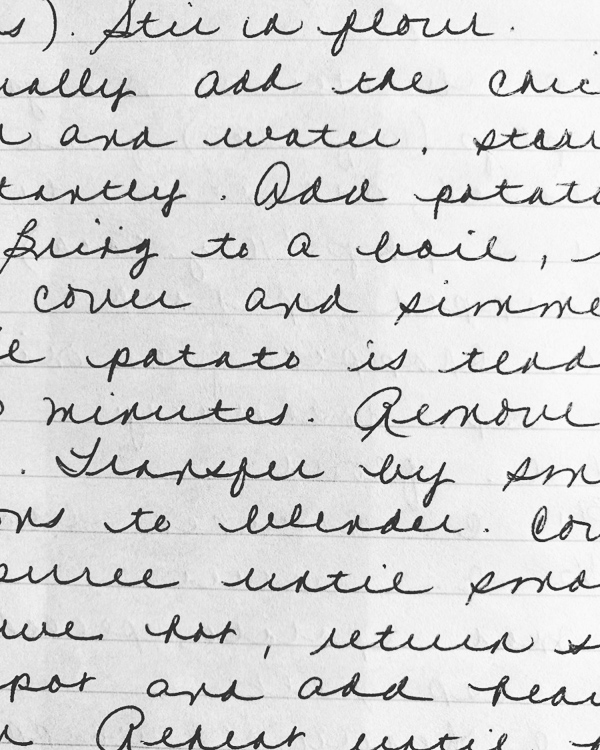 s). Stir in flour.
ually add the chic
and water, stirr
tantly. Add potato
Bring to a boil,
cover and simme
potato is tend
minutes. Remove
. Transfer by sm
ons to blender. Cov
puree until smoo
rve hot, return s
pot and add heav
Reheat until